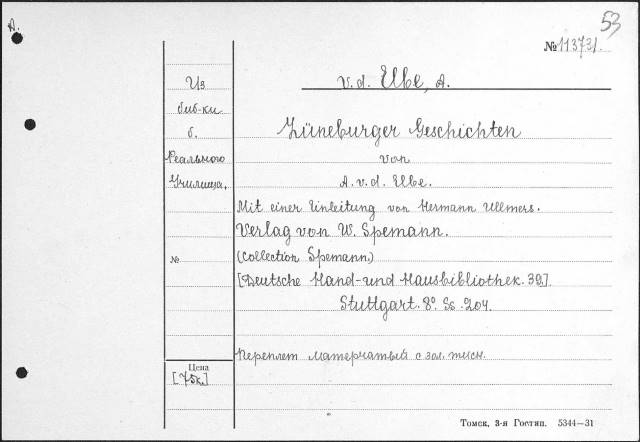 А.
53
№ 113731.
Из
библ-ки
б.
Реального
Училища.
№
Цена
[75к.]
v. d. Elbe, A.
Lüneburger Geschichten
von
A. v. d. Elbe.
Mit einer Einleitung von Hermann Allmers.
Verlag von W. Spemann.
(Collection Spemann.)
[Deutsche Hand- und Hausbibliothek. 39.]
Stuttgart. 8º. Ss. 204.
Переплет матерчатый с зол. тисн.
Томск, 3-я Гостип. 5344—31